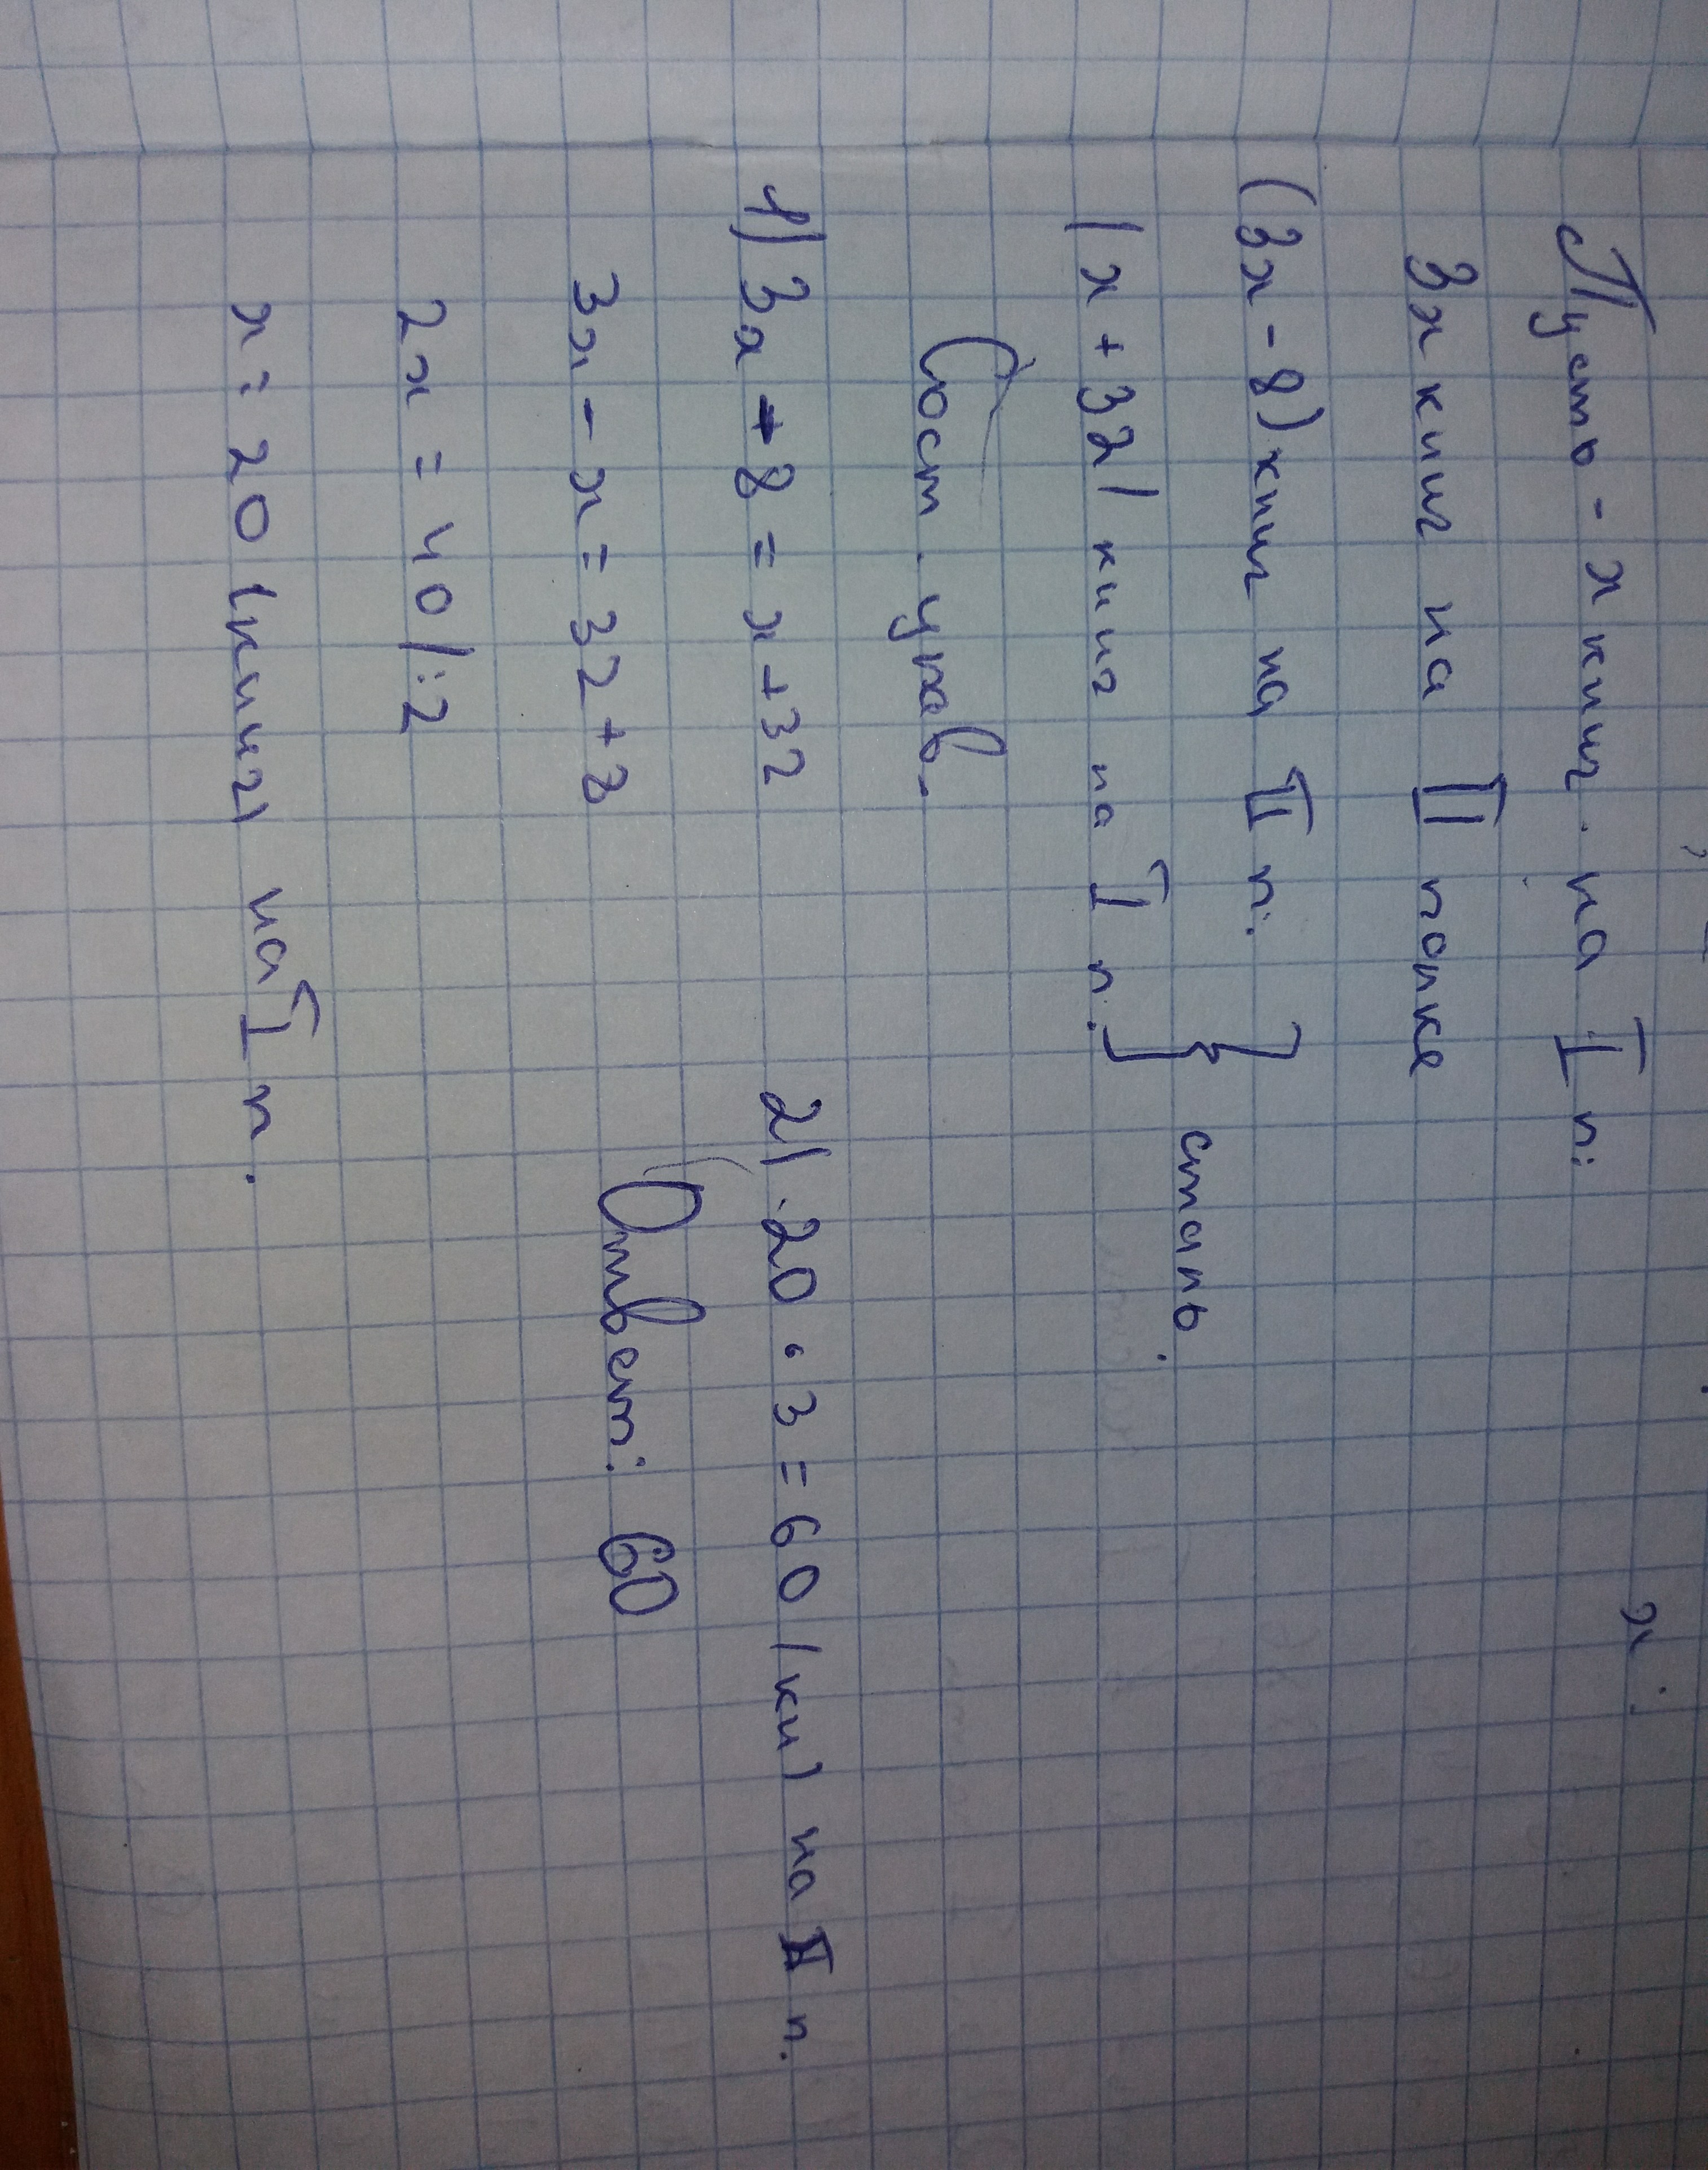 х.
Пусть - х книг. на I п.
3х книг на II полке
(3х - 8) книг на II п.
(х + 32) книг на I п. } стало.
Сост. урав.
1) 3х - 8 = х + 32
3х - х = 32 + 8
2х = 40 | : 2
х = 20 (книг) на I п.
2) 20 · 3 = 60 (кн) на II п.
Ответ: 60